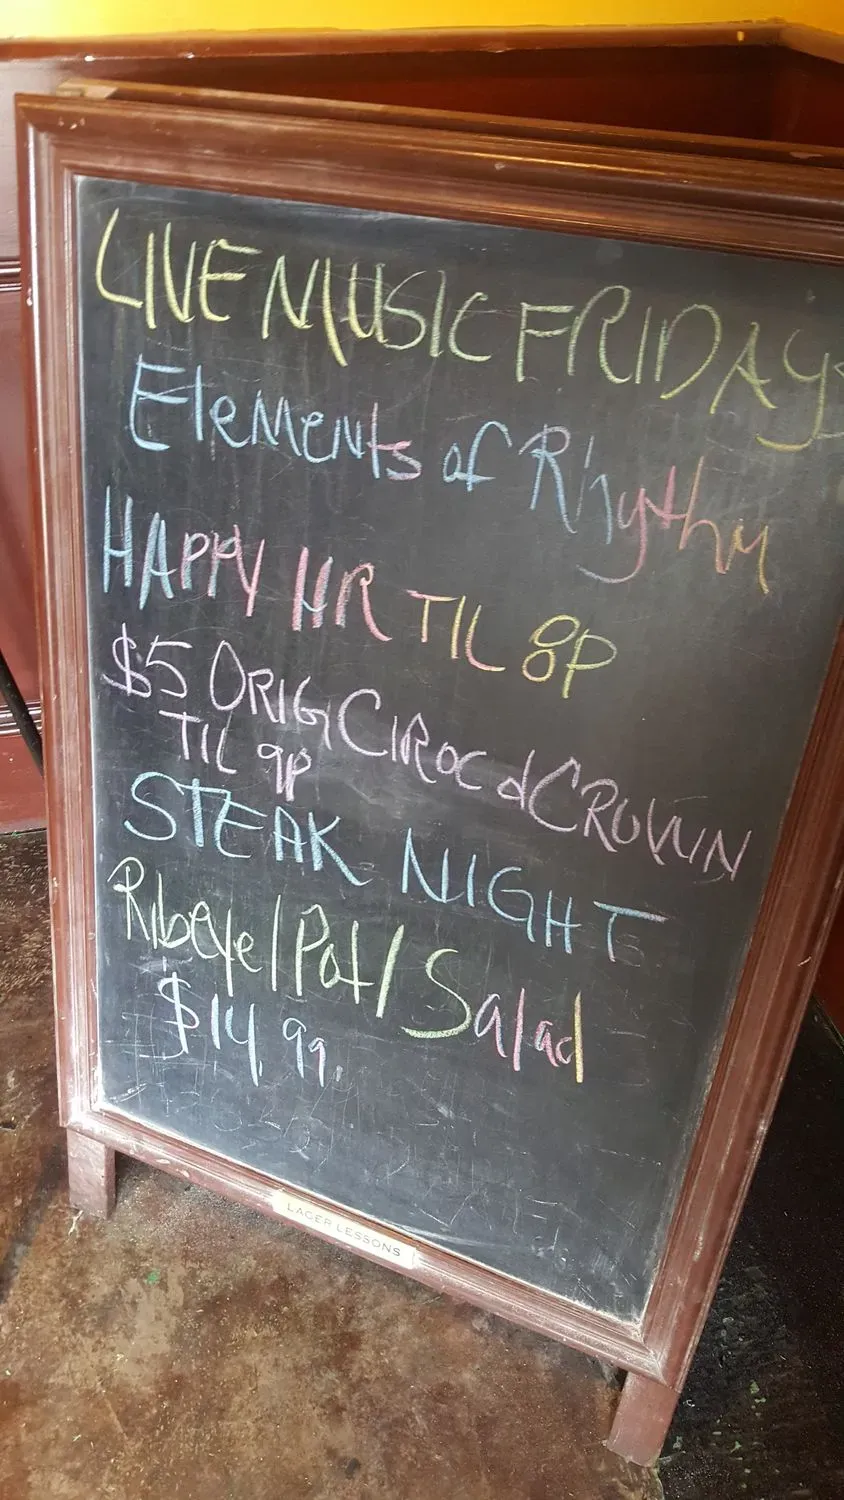 LIVE MUSIC FRIDAYS
Elements of Rhythm
HAPPY HR TIL 8P
$5 ORIG CIROC & CROWN
TIL 9P
STEAK NIGHT
Ribeye/Pot/Salad
$14.99.
LAGER LESSONS